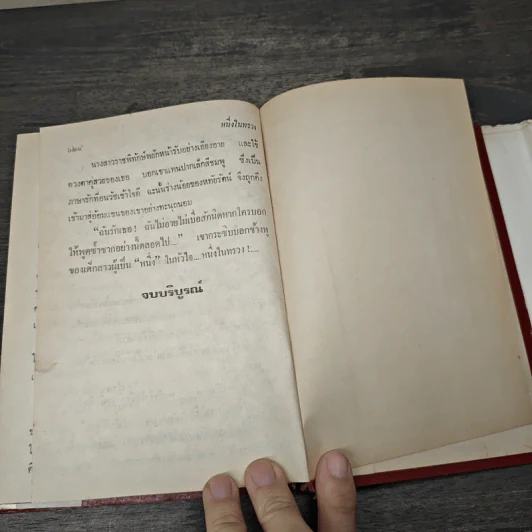 ๖๒๔ หนึ่งในทรวง
นางสาวราชพิทักษ์พยักหน้ารับอย่างเอียงอาย และใช้
ดวงตาคู่สวยของเธอ บอกเขาแทนปากเล็กสีชมพู ซึ่งเป็น
ภาษารักที่อนวัชเข้าใจดี ฉะนั้นร่างน้อยของหทัยรัตน์ จึงถูกดึง
เข้ามาสู่อ้อมแขนของเขาอย่างทะนุถนอม
“ฉันรักเธอ! ฉันไม่อายไม่เบื่อสักนิดหากใครบอก
ให้พูดซ้ำซากอย่างนี้ตลอดไป...” เขากระซิบบอกข้างหู
ของเด็กสาวผู้เป็น “หนึ่ง” ในหัวใจ...หนึ่งในทรวง!...
จบบริบูรณ์